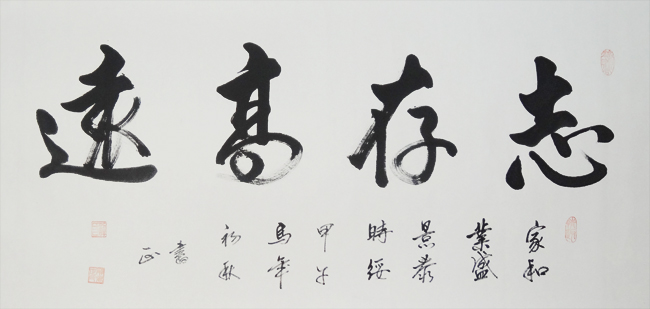 志存高遠
家和
業盛
景泰
時綏
甲午
馬年
初秋
書
正